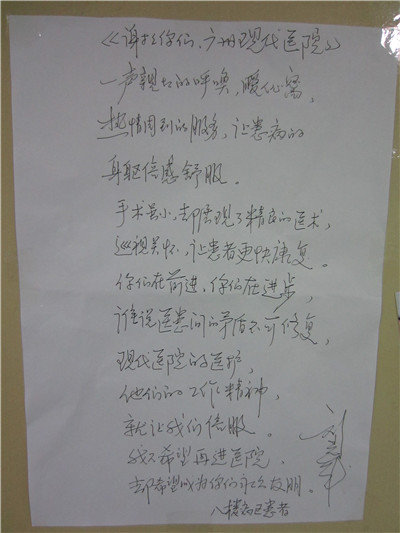 《谢谢你们、广州现代医院》
一声亲切的呼唤,暖心窝,
热情周到的服务,让患病的
身躯倍感舒服.
手术虽小,却体现了精良的医术,
巡视关怀,让患者更快康复.
你们在前进、你们在进步,
谁说医患间的矛盾不可修复,
现代医院的医护,
他们的工作精神,
就让我们信服.
我不希望再进医院.
却希望成为你们永久故朋.
八楼病区患者